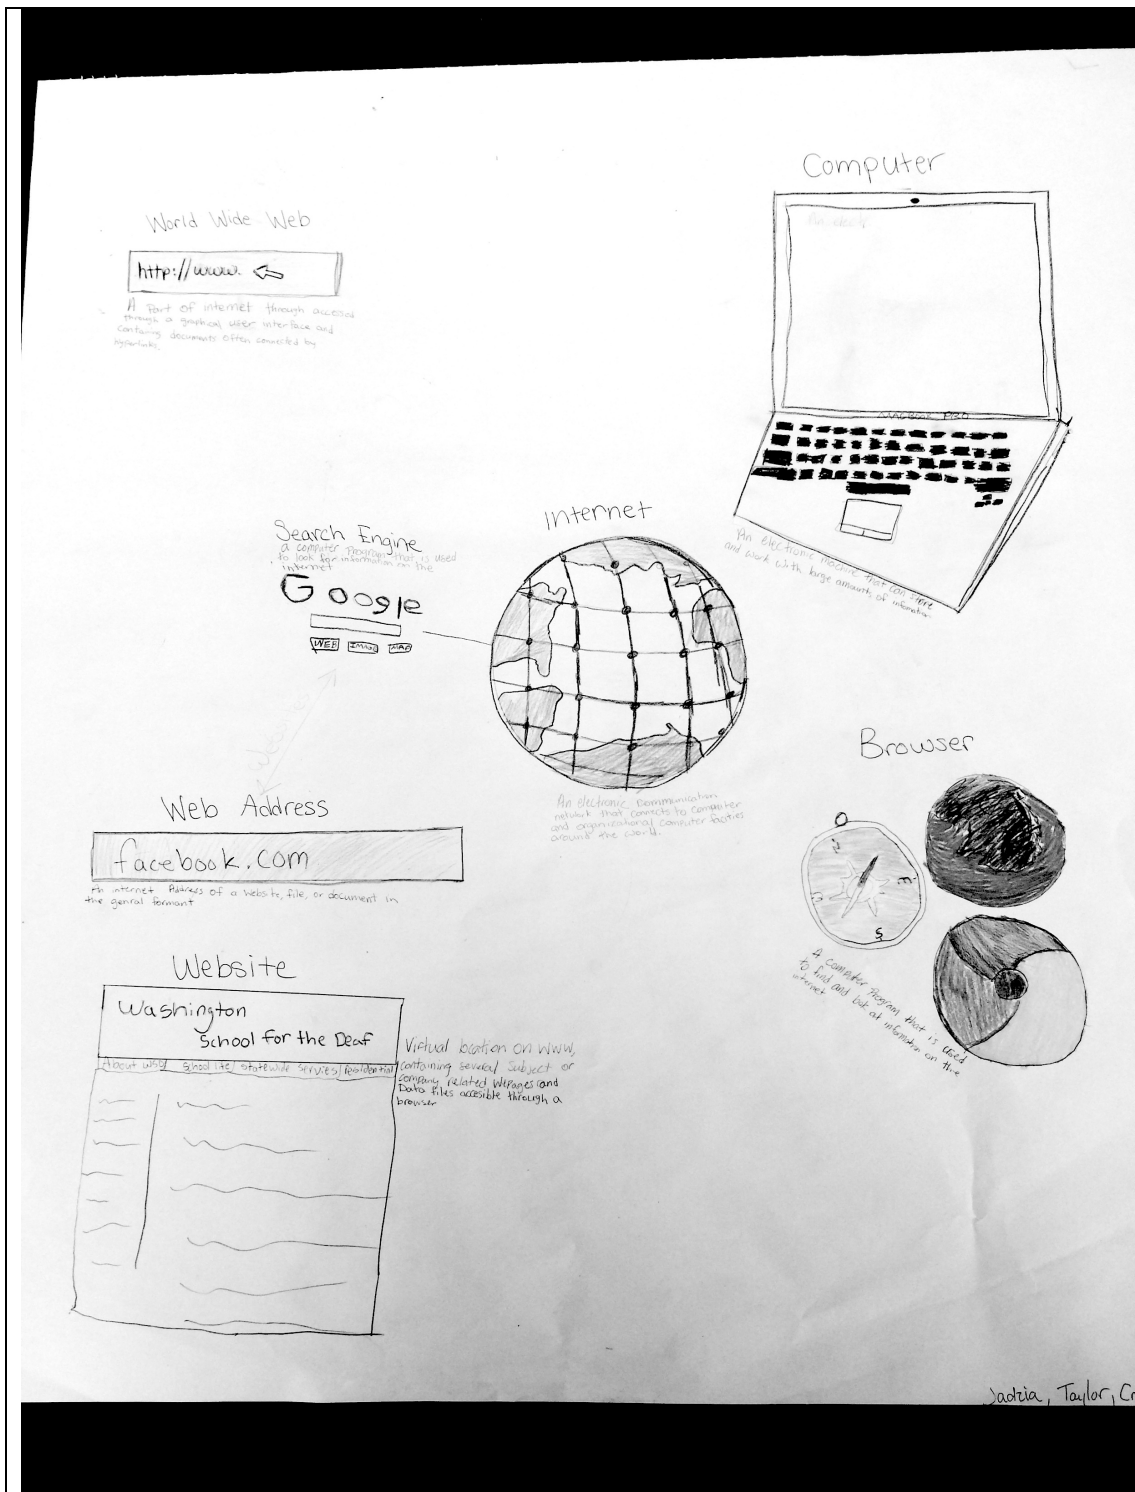 Computer
An elect
World Wide Web
http://www.
A Part of internet through accessed
through a graphical user interface and
containg documents often connected by
hyperlinks.
MACBOOK PRO
An electronic machine that can store
and work with large amounts of infomation
Search Engine
a computer Program that is used
to look for information on the
internet
Google
WEB IMAGE MAP
Internet
An electronic communication
network that connects to computer
and organizational computer facilties
around the world.
Web Address
facebook.com
An internet Address of a website, file, or document in
the genral formant
Browser
N
E
S
A computer Program that is used
to find and look at information on the
internet
Website
Washington
School for the Deaf
About WSD/ School life/ Statewide Servies/ Residential
Virtual location on WWW,
containing several Subject or
company related Wepages and
Data files accesible through a
browser
Jadzia, Taylor, Cr